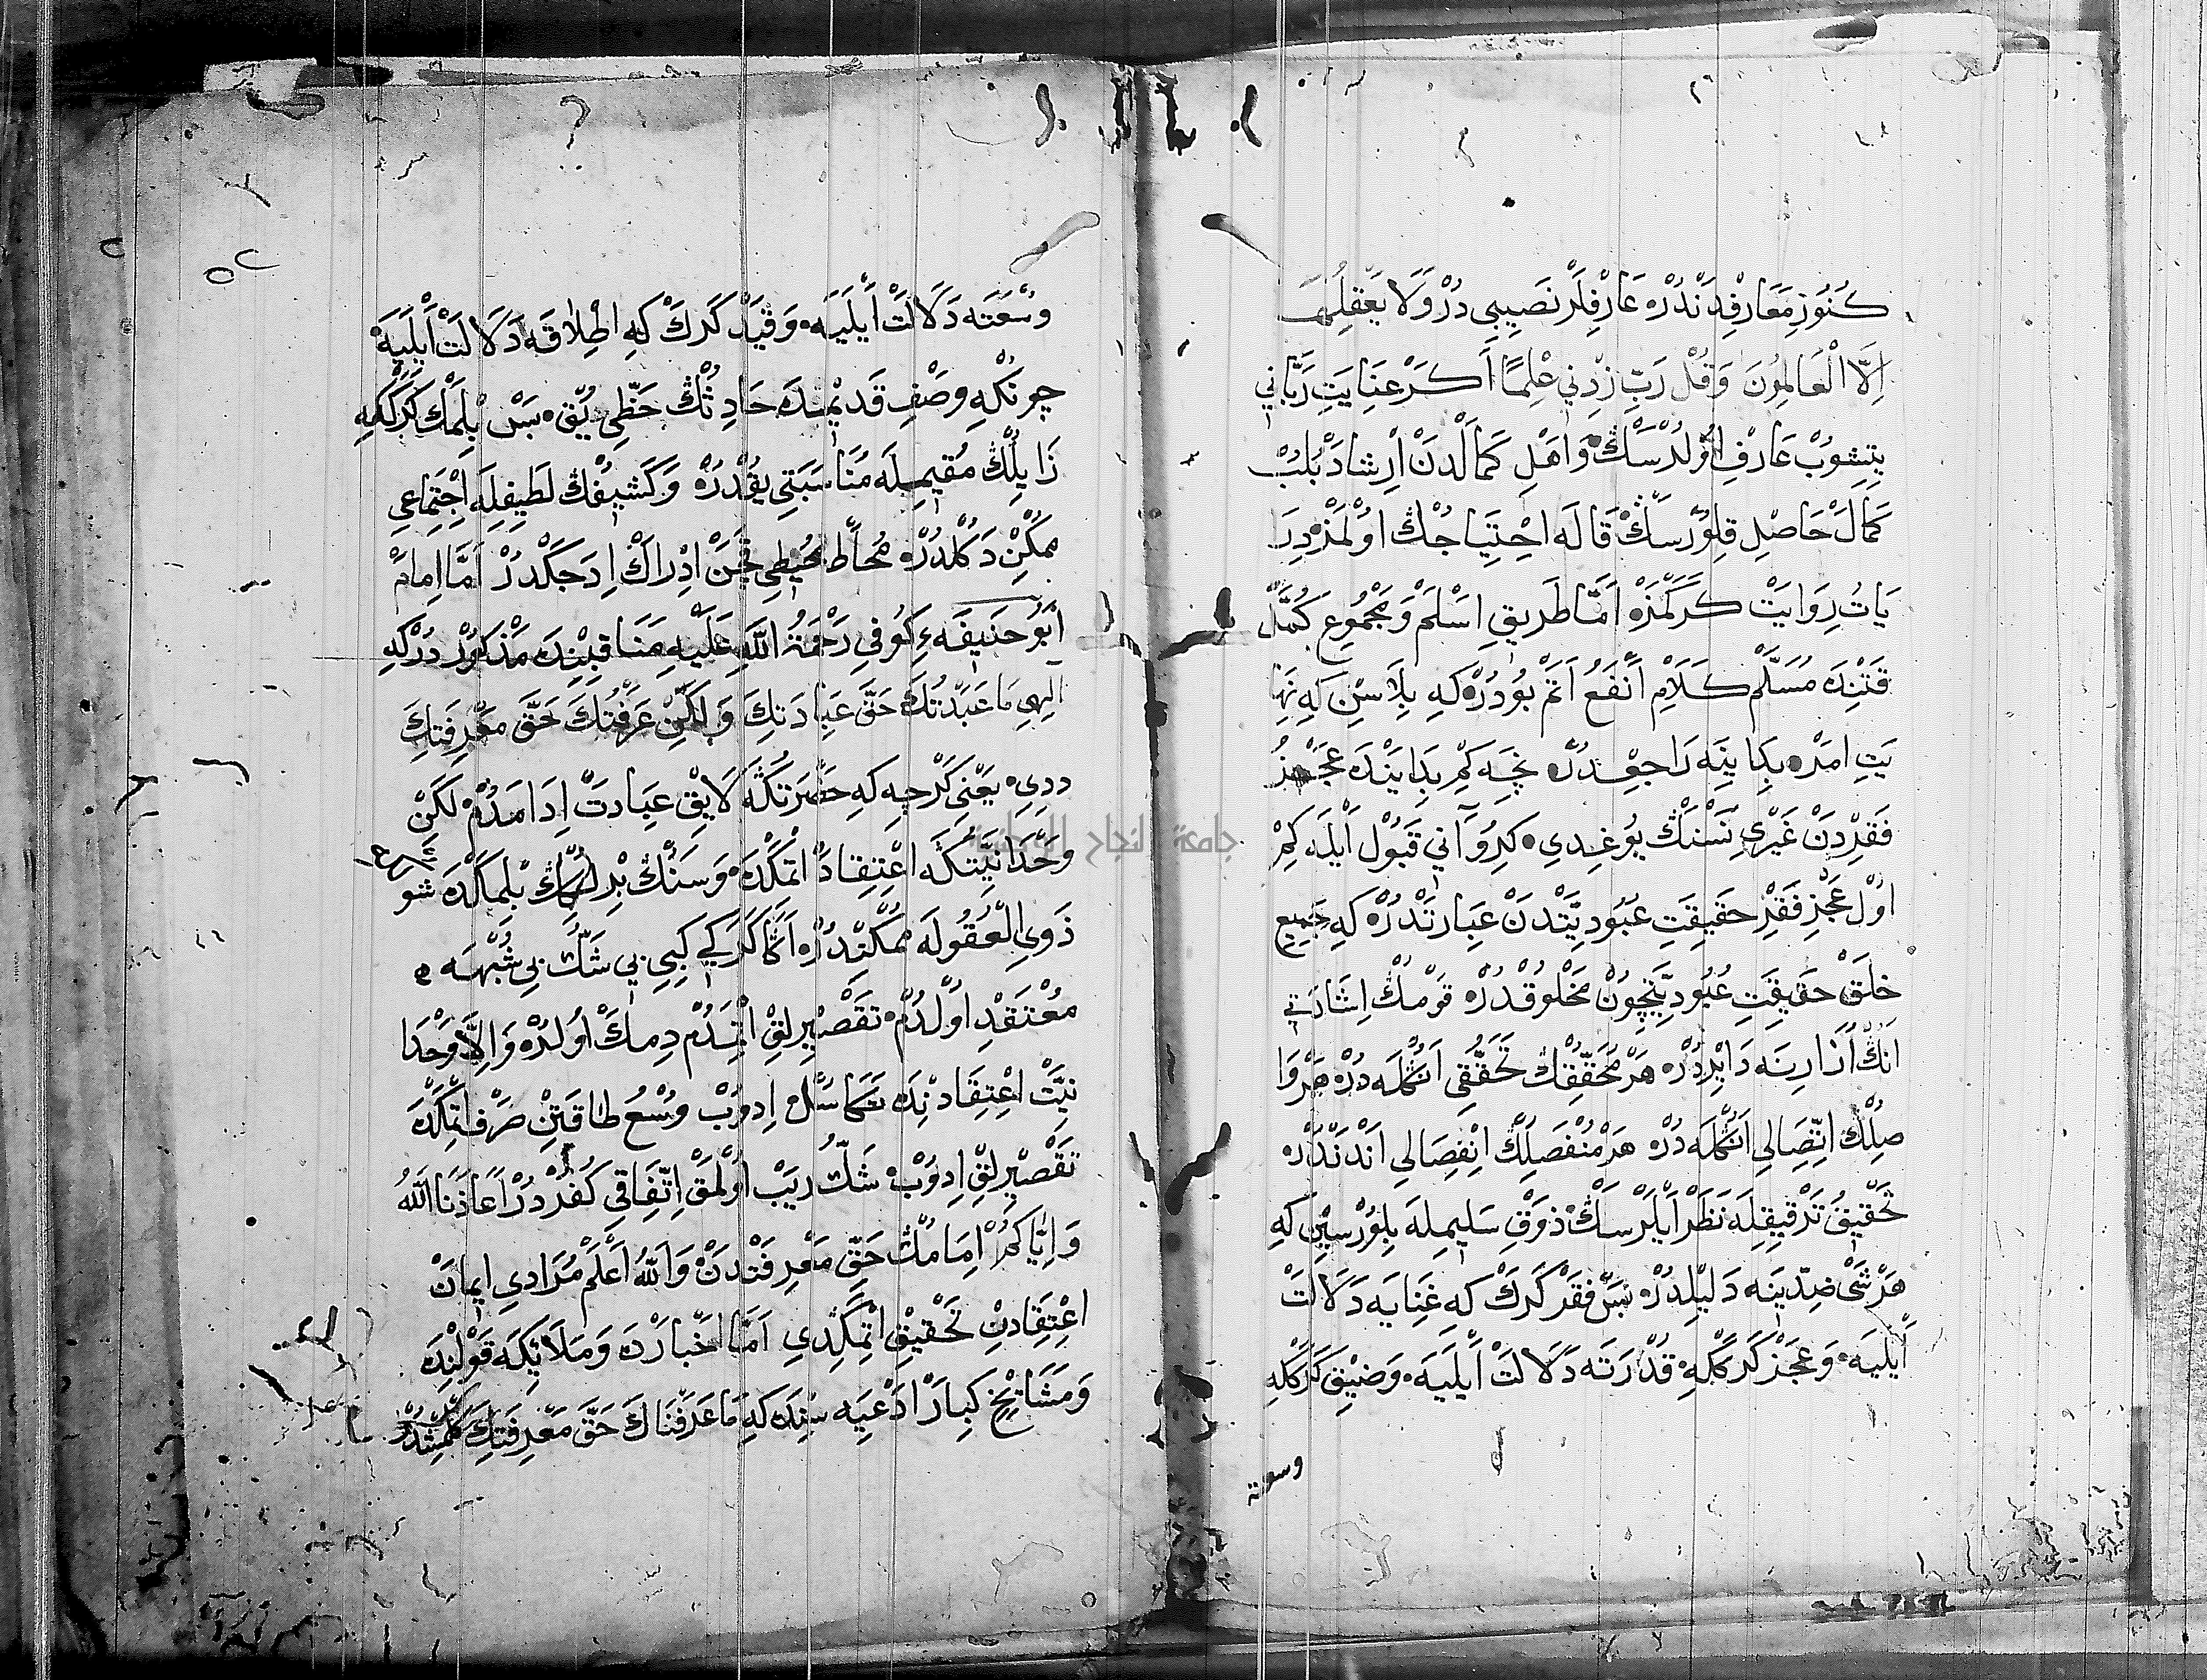 كُنُوزِ مَعَارِفْدَنْدُرْ عَارِفْلَرْ نَصِيبِي دُرْ وَلَا يَعْقِلُهَا
اِلَّا الْعَالِمُونَ وَقُلْ رَبِّ زِدْنِي عِلْمًا اَكَرْ عِنَايَتِ رَبَّانِي
يِتِشُوبْ عَارِفْ اُولُرْسَڭْ وَاَهْلِ كَمَالْدَنْ اِرْشَادْ بُلُبْ
كَمَالْ حَاصِلِ قِلُورْسَڭْ قَالَه اِحْتِيَاجُڭْ اُولْمَزْ دِرَ
يَاتُ رِوَايَتْ كَرَكْمَزْ اَمَّا طَرِيقِ اِسْلَمْ وَمَجْمُوعِ كُمَّلْ
قَتِنْدَه مُسَلَّمْ كَلَامِ اَنْفَعُ اَتَمْ بُودُرْ كِه بِلَاسِنْ كِه نِهَا
يَتِ اَمْرْ بِدَايَتَه رَاجِعْدُرْ نِچَه كِمْ بِدَايَتْدَه عَجْزُ
فَقِرْدَنْ غَيْرِي نَسْنَڭْ يُوغِدِي كِرُو آنِي قَبُولْ اَيْلَه كِمْ
اُولْ عَجْزِ فَقِرْ حَقِيقَتِ عُبُودِيَّتْدَنْ عِبَارَتْدُرْ كِه جَمِيعِ
خَلَقْ حَقِيقَتِ عُبُودِيَّتِچُونْ مَخْلُوقْدُرْ قَوْمُڭْ اِشَارَتِي
اَنُڭْ اُزَارِينَه دَايِرْدُرْ هَرْ مُحَقِّقُڭْ تَحَقُّقِي اَنُڭْلَه دُرْ هَرْ وَا
صِلُڭْ اِتِّصَالِي اَنُڭْلَه دُرْ هَرْ مُنْفَصِلُڭْ اِنْفِصَالِي اَنْدَنْدُرْ
تَحْقِيقُ تَدْقِيقِلَه نَظَرْ اَيْلَرْسَڭْ ذَوْقِ سَلِيمِلَه بِلُورْسِنْ كِه
هَرْ شَيْ ضِدِّينَه دَلِيلْدُرْ بَسْ فَقْرْ كَرَكْ كِه غِنَايَه دَلَالَتْ
اَيْلَيَه وَعَجْزْ كَرَكْكِه قُدْرَتَه دَلَالَتْ اَيْلَيَه وَضِيْقْ كَرَكْكِه
وسعته
وُسْعَتَه دَلَالَتْ اَيْلَيَه وَقَيْدْ كَرَكْ كِه اِطْلَاقَه دَلَالَتْ اَيْلَيَه
چُونْكِه وَصْفِ قَدِيمْدَه حَادِثُڭْ حَظِّي يُقْ بَسْ بِلْمَكْ كَرَكْكِه
زَايِلُڭْ مُقِيمِلَه مُنَاسَبَتِي يُقْدُرْ وَكَشِيفُڭْ لَطِيفِلَه اِجْتِمَاعِي
مُمْكِنْ دَكُلْدُرْ مُحَاطْ مُحِيطِي نِچَنْ اِدْرَاكْ اِدَجَكْدُرْ اَمَّا اِمَامْ
اَبُو حَنِيفَهءِ كُوفِي رَحْمَةُ اللّٰهِ عَلَيْهِ مَنَاقِبِنْدَه مَذْكُورْدُرْكِه
اِلٰهِي مَا عَبَدْتُكَ حَقَّ عِبَادَتِكَ وَلٰكِنْ عَرَفْتُكَ حَقَّ مَعْرِفَتِكَ
دِدِي يَعْنِي كَرْچِه كِه حَضْرَتُڭَه لَايِقْ عِبَادَتْ اِدَامَدُمْ لَكِنْ
وَحْدَانِيَّتُڭَه اِعْتِقَادْ اِتْمَكْدَه وَسَنُڭْ بِرْلِڭُڭْ بِلْمَكْدَه شُو
ذَوِي الْعُقُولَه مُمْكِنْدُرْ اَڭَا كَرَكِي كِبِي بِي شَكّْ بِي شُبْهَه
مُعْتَقِدْ اُولْدُمْ تَقْصِيرْلِقْ اِتْمَدُمْ دِمَكْ اُولُدْرْ وَاِلَّا وَحْدَا
نِيَّتْ اِعْتِقَادِنْدَه اِدُوبْ وُسْعُ طَاقَتِنْ صَرْفْ اِتْمَكْدَه
تَقْصِيرْلِقْ اِدُوبْ شَكُّ رَيْبْ اُولْمَقْ اِتِّفَاقِي كُفْرْدُرْ اَعَاذَنَا اللّٰهُ
وَاِيَّاكُمْ اِمَامُڭْ حَقِّ مَعْرِفَتْدَنْ وَاللّٰهُ اَعْلَمْ مُرَادِي اِيمَانْ
اِعْتِقَادِنْ تَحْقِيقْ اِتْمَكْدِي اَمَّا اَخْبَارْدَه وَمَلَائِكَه قَوْلِنْدَه
وَمَشَايِخِ كِبَارْ اَدْعِيَه سِنْدَه كِه مَا عَرَفْنَاكَ حَقَّ مَعْرِفَتِكَ كَلْمِشْدُرْ